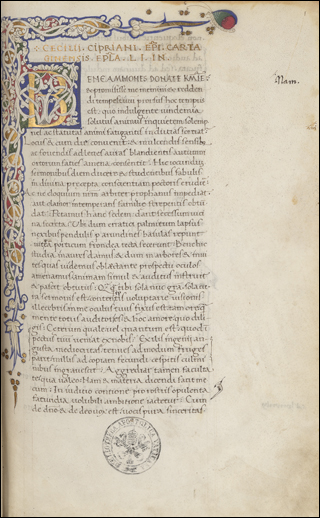 CECILII CIPRIANI EPI CARTA
GINENSIS EPLA. I. IN.
BENE AMMONES DONATE KARISSIME
Nam.
Nam & promisisse me memini & reddendi
di tempestiuum prorsus hoc tempus
est: quo indulgente uindemia
solutus animus in quietem solemp
nes ac statutas anni fatigantis indutias sortiatur
Locus & cum die conuenit & mulcendis sensibus
ac fouendis ad lenes auras blandientis autumni
ortorum facies amena consentit. Hic iocundum
sermonibus diem ducere & studentibus fabulis
in diuina precepta conscientiam pectoris erudire
ac ne eloquium nostrum arbiter prophanus impediat
aut clamor intemperans familie strepentis obtun
dat. Petamus hanc sedem: dant secessum uici
na secreta. Vbi dum erratici palmitum lapsus
nexibus pendulis p arundines baiulas repunt
uiteam porticum frondea tecta fecerunt. Bene hic
studia in aures damus & dum in arbores & in ui
tes quas uidemus oblectante prospectu oculos
amenamus animam simul & auditus instruit
& pascit obtutus: Quamquam tibi sola nunc gratia sola cu
ra sermonis est: contemptis uoluptarie uisionis
illecebris in me oculus tuus fixus est tam ore quam
mente totus auditor es & hoc amore quo dili
gis: Ceterum quale uel quantum est: quod in
pectus tuum ueniat ex nobis? Exilis ingenii an
gusta mediocritas tenues admodum fruges
parit nullis ad copiam fecundi cespitis culmi
nibus ingrauescit. Aggrediar tamen faculta
te qua ualeo. Nam & materia dicendi facit me
cum: In iuditiis contione pro rostris opulenta
facundia uolubili ambitione iactetur: Cum
de dno & de deo uox est: uocis pura sinceritas
BIBLIOTHECA APOSTOLICA VATICANA